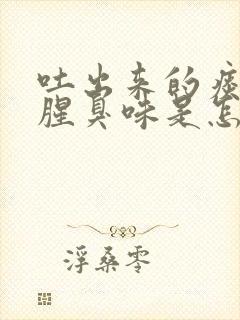 吐出来的痰
腥臭味是怎
浮桑零